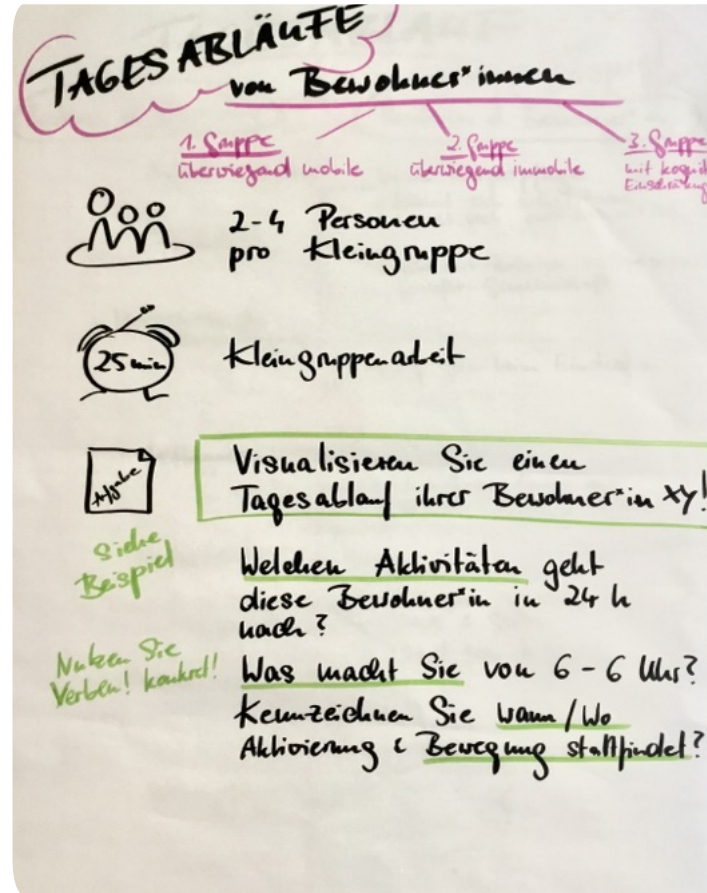 TAGESABLÄUFE
von Bewohner*innen
1. Gruppe
überwiegend mobile
2. Gruppe
überwiegend immobile
3. Gruppe
mit
2-4 Personen
pro Kleingruppe
25 min
Kleingruppenarbeit
Aufgabe
Visualisieren Sie einen
Tagesablauf ihrer Bewohner*in xy!
Siehe
Beispiel
Welchen Aktivitäten geht
diese Bewohner*in in 24 h
nach?
Nutzen Sie
Verben! konkret!
Was macht Sie von 6-6 Uhr?
Kennzeichnen Sie wann/Wo
Aktivierung & Bewegung stattfindet?